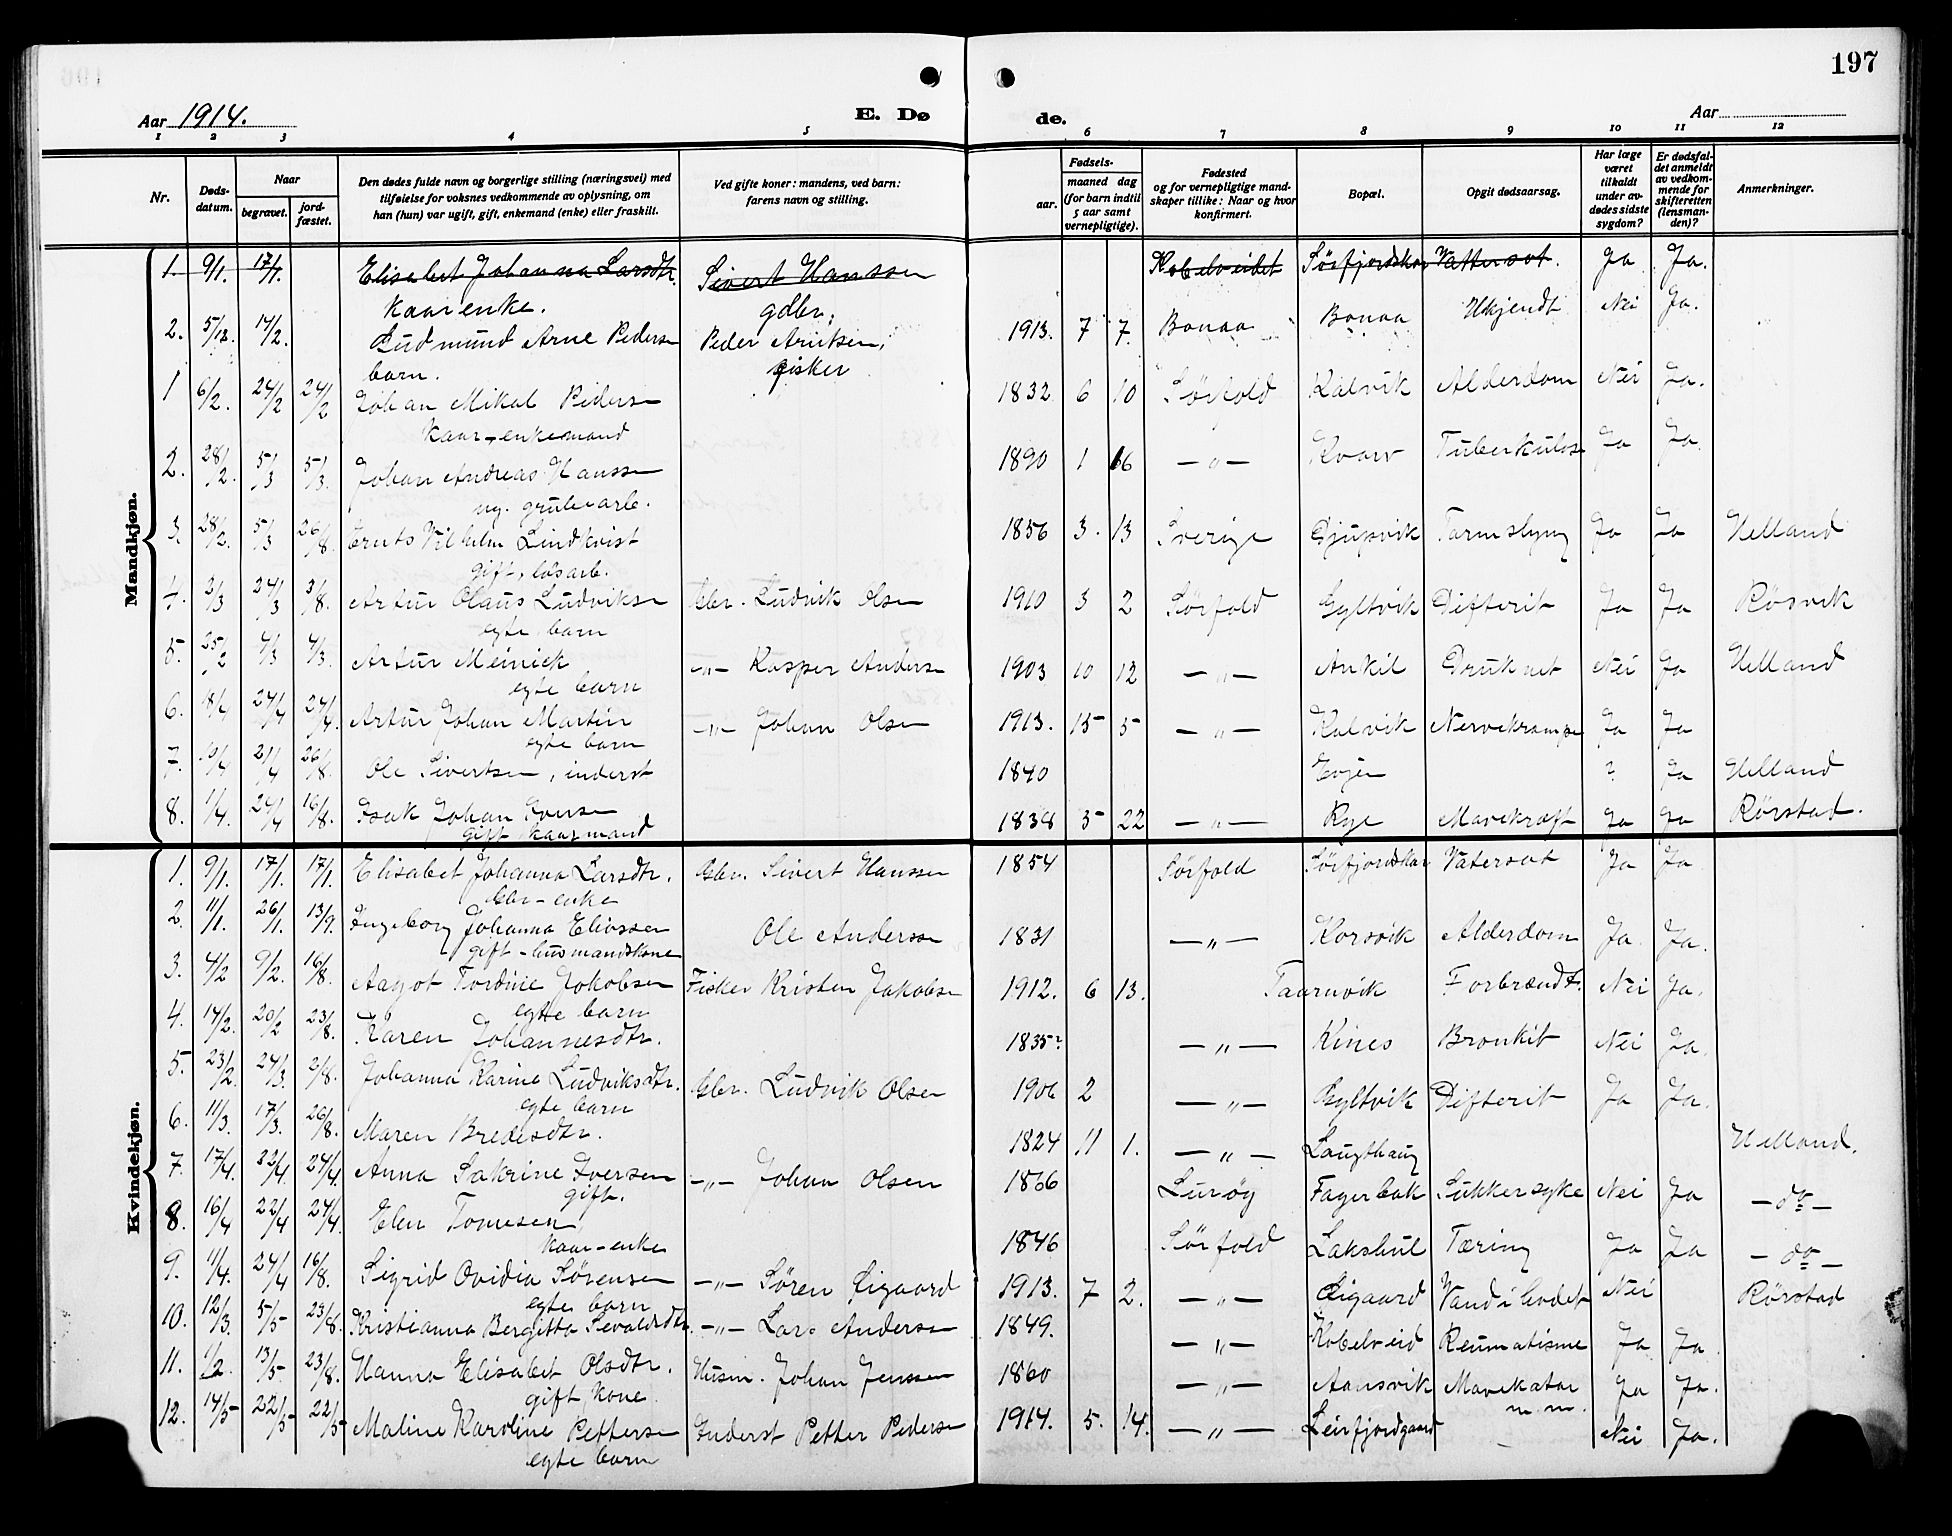 197
Aar 1914. E. Dø de. Aar
1 2 3 4 5 6 7 8 9 10 11 12
Nr. Døds-datum. Naar begravet. jord-fæstet. Den dødes fulde navn og borgerlige stilling (næringsvei) med tilføielse for voksnes vedkommende av oplysning, om han (hun) var ugift, gift, enkemand (enke) eller fraskilt. Ved gifte koner: mandens, ved barn: farens navn og stilling. Fødsels- aar. maaned dag (for barn indtil 5 aar samt vernepligtige). Fødested og for vernepligtige mandskaper tillike: Naar og hvor konfirmert. Bopæl. Opgit dødsaarsag. Har læge været tilkaldt under avdødes sidste sygdom? Er dødsfaldet anmeldt av vedkommende for skifteretten (lensmanden)? Anmerkninger.
Mandkjøn.
1. 9/1. 17/1. Elisabet Johanna Larsdtr. Sivert Hanssen Kobelveidet Sørfjordskar Vattersot. Ja Ja.
kaarenke. gdbr.
2. 5/12. 14/2. Ludmund Arne Pedersen Peder Arntsen, 1913. 7 7. Bonaa Bonaa Ukjendt Nei Ja.
barn. fisker
1 6/2. 24/2 24/2 Johan Mikal Pedersen 1832 6 10 Sørfold Kalvik Alderdom Nei Ja.
kaar-enkemand
2. 28/2. 5/3 5/3. Johan Andreas Hanssen 1890 1 16 — " — Kvarv Tuberkulos Ja Ja.
ug. grubearb.
3. 28/2. 5/3 26/8. Ernts Vilhelm Lindkvist 1856 3. 13 Sverige Djupvik Tarmslyng Ja Ja Helland
gift, løsarb.
4. 2/3 24/3 3/8. Artur Olaus Ludviksen Gbr. Ludvik Olsen 1910 3 2 Sørfold Gyltvik Difterit Ja Ja Røsvik
egte barn
5. 25/2 4/3 4/3. Artur Meinick — " — Kasper Andersen 1903 10 12 — " — Ankil Druknet Nei Ja Helland
egte barn
6. 18/4 24/4 24/4. Artur Johan Martin — " — Johan Olsen 1913. 15 5 — " — Kalvik Nervekrampe Ja Ja
egte barn
7. 10/4 21/4 26/8. Ole Sivertsen, inderst 1840 Evjen ? Ja Helland
8. 1/4. 24/4 16/8. Isak Johan Iversen 1838 5 22 — " — Rye Mavekræft Ja Ja Rørstad.
gift kaarmand
Kvindekjøn.
1. 9/1. 17/1. 17/1. Elisabet Johanna Larsdtr. Gbr. Sivert Hanssen 1854 Sørfold Sørfjordskar Vatersot Ja Ja
Gbr-enke
2. 11/1. 26/1. 13/9. Ingeborg Johanna Eliassen Ole Andersen 1831 — " — Korsvik Alderdom Ja. Ja.
gift - husmandskone
3. 4/2 9/2. 16/8. Aagot Tordine Jakobsen Fisker Kristen Jakobsen 1912. 6 13. Taarnvik Forbrændt. Nei Ja.
egte barn
4. 14/2. 20/2 23/8. Karen Johannesdtr. 1835? — " — Kines Bronkit Nei Ja.
5. 23/2. 24/3. 2/8. Johanna Karine Ludviksdtr. Gbr. Ludvik Olsen 1906 2 — " — Gyltvik Difterit Ja Ja.
egte barn
6. 11/3. 17/3. 26/8. Maren Bredesdtr. 1824 11 1. — " — Laugthaug Helland.
7. 17/4. 22/4. 24/4. Anna Sakrine Iversen — " — Johan Olsen 1866 Lurøy Fagerbak Sukkersyke Nei Ja — do —
gift.
8. 16/4 22/4 24/4. Elen Tomesen 1846 Sørfold Lakshul Tæring Ja Ja — do —
kaar-enke
9. 11/4. 24/4 16/8. Sigrid Ovidia Sørensen — " — Søren Eigaard 1913. 7 2. — " — Eigaard Vand i hodet Nei Rørstad
egte barn
10. 12/3. 5/5 23/8. Kristianna Bergitta Sevaldsdtr. — " — Lars Andersen 1849. — " — Kobelveid Reumatisme Ja Ja.
11. 1/2. 13/5. 23/8. Hanna Elisabet Olsdtr. Husm. Johan Jenssen 1860 — " — Aansvik Mavekatar Ja Ja.
gift kone m. m.
12. 14/5 22/5 22/5 Maline Karoline Pettersen Inderst Petter Pedersen 1914. 5. 14. — " — Leirfjordgaard - Nei Ja.
egte barn